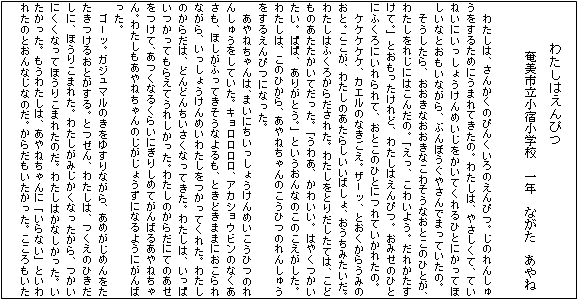 わたしはえんぴつ
奄美市立小宿小学校　一年　ながた　あやね
　わたしは、さんかくのぴんくいろのえんぴつ。じのれんしゅ
うをするためにうまれてきたの。わたしは、やさしくて、てい
ねいにいっしょうけんめいじをかいてくれるひとにかってほ
しいなとおもいながら、ぶんぼうぐやさんでまっていたの。
　そうしたら、おおきなおおきなこわそうなおとこのひとが、
わたしをれじにはこんだの。「えっ、こわいよう。だれかたす
けて。」とおもったけれど、わたしはえんぴつ。おみせのひと
にふくろにいれられて、おとこのひとにつれていかれたの。
　ケケケケケ、カエルのなきごえ。ザーッ、とおくからうみの
おと。ここが、わたしのあたらしいいばしょ、おうちみたいだ。
わたしはふくろからだされた。わたしをとりだしたては、こど
ものあたたかいてだった。「うわあ、かわいい。はやくつかい
たい。ぱぱ、ありがとう。」というおんなのこのこえがした。
わたしは、このひから、あやねちゃんのこうひつのれんしゅう
をするえんぴつになった。
　あやねちゃんは、まいにちいっしょうけんめいこうひつのれ
んしゅうをしていた。キョロロロロ、アカショウビンのなくあ
さも、ほしがふってきそうなよるも、ときどきままにおこられ
ながら、いっしょうけんめいわたしをつかってくれた。わたし
のからだは、どんどんちいさくなってきた。わたしは、いっぱ
いつかってもらえてうれしかった。わたしのからだにてのあせ
をつけて、あつくなるくらいにぎりしめてがんばるあやねちゃ
ん。わたしもあやねちゃんのじがじょうずになるようにがんば
った。
　ゴーッ、ガジュマルのきをゆすりながら、あめがじめんをた
たきつけるおとがする。とつぜん、わたしは、つくえのひきだ
しに、ほうりこまれた。わたしがみじかくなったから、つかい
にくくなってほうりこまれたのだ。わたしはかなしかった。い
たかった。もうわたしは、あやねちゃんに「いらない」といわ
れたのとおんなじなのだ。からだもいたかった。こころもいた